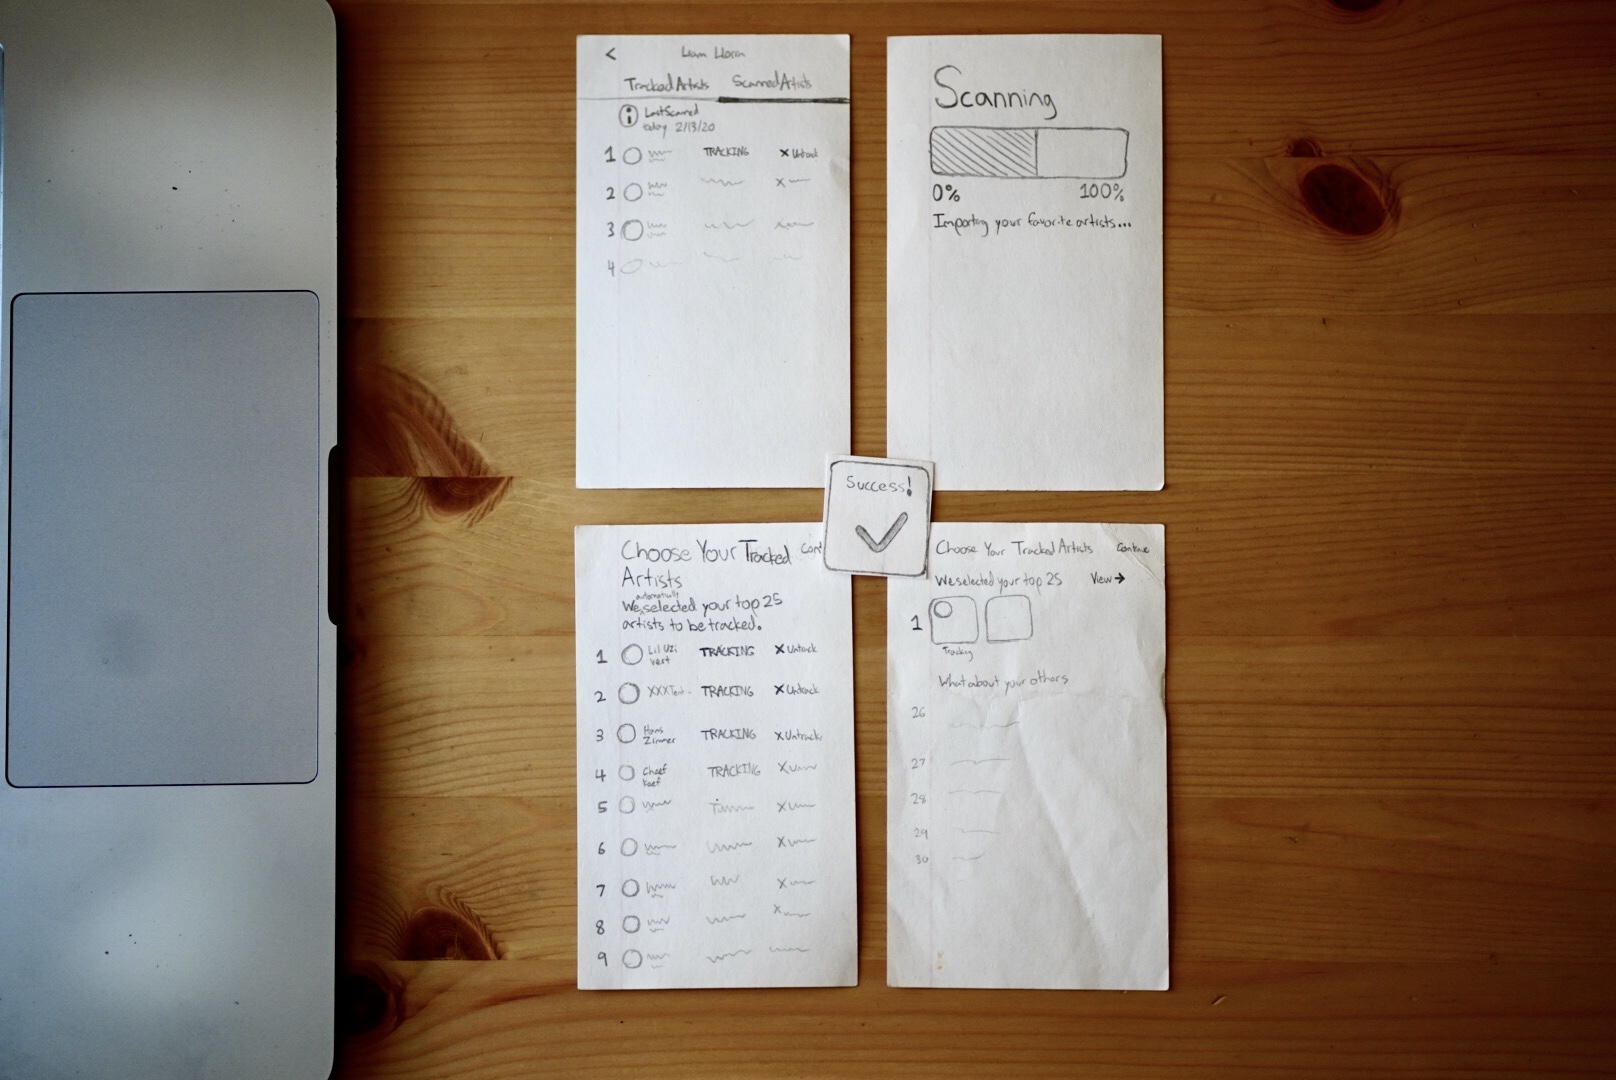 <
Tracked Artists Scanned Artists
i Last Scanned
today 2/13/20
1 TRACKING X Untrack
2 X
3
4
Scanning
0% 100%
Importing your favorite artists...
Success!
Choose Your Tracked Cont
Artists
automatically
We selected your top 25
artists to be tracked.
1 Lil Uzi
Vert TRACKING X Untrack
2 XXXTent- TRACKING X Untrack
3 Hans
Zimmer TRACKING X Untrack
4 Cheef
Keef TRACKING X
5 X
6 X
7 X
8 X
9
Choose Your Tracked Artists Continue
We selected your top 25 View →
1
Tracking
What about your others
26
27
28
29
30